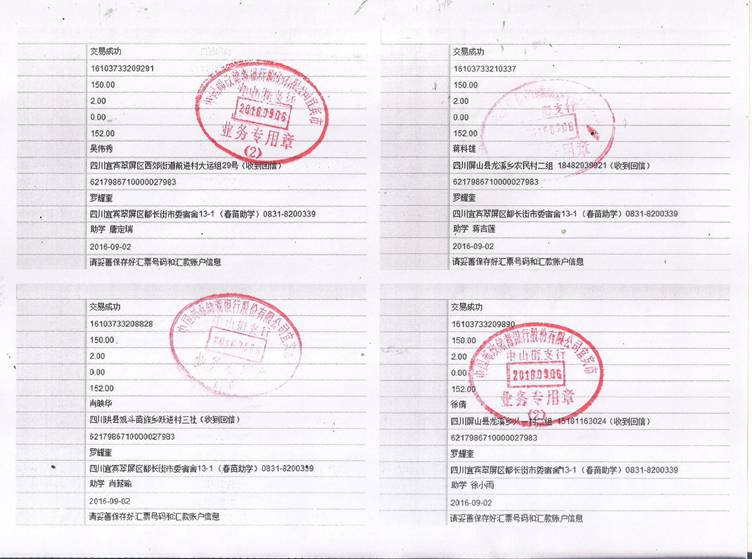 交易成功
16103733209291
150.00
2.00
0.00
152.00
吴伟秀
四川宜宾翠屏区西郊街道前进村大运组29号（收到回信）
6217986710000027983
罗耀奎
四川宜宾翠屏区都长街市委宿舍13-1（春苗助学）0831-8200339
助学 唐定瑞
2016-09-02
请妥善保存好汇票号码和汇款账户信息
中国邮政储蓄银行股份有限公司宜宾市
中山街支行
2016.09.06
业务专用章
(2)
交易成功
16103733210337
150.00
2.00
0.00
152.00
蒋科雄
四川屏山县龙溪乡农民村二组 18482939921（收到回信）
6217986710000027983
罗耀奎
四川宜宾翠屏区都长街市委宿舍13-1（春苗助学）0831-8200339
助学 蒋吉莲
2016-09-02
请妥善保存好汇票号码和汇款账户信息
街支行
用章
交易成功
16103733208828
150.00
2.00
0.00
152.00
肖映华
四川珙县观斗苗族乡跃进村三社（收到回信）
6217986710000027983
罗耀奎
四川宜宾翠屏区都长街市委宿舍13-1（春苗助学）0831-8200339
助学 肖
2016-09-02
请妥善保存好汇票号码和汇款账户信息
中国邮政储蓄银行股份有限公司宜宾市
中山街支行
交易成功
16103733209890
150.00
2.00
0.00
152.00
徐倩
四川屏山县龙溪乡八一村二组 15181163024（收到回信）
6217986710000027983
罗耀奎
四川宜宾翠屏区都长街市委宿舍13-1（春苗助学）0831-8200339
助学 徐小雨
2016-09-02
请妥善保存好汇票号码和汇款账户信息
中国邮政储蓄银行股份有限公司宜宾市
中山街支行
2016.09.06
业务专用章
(2)